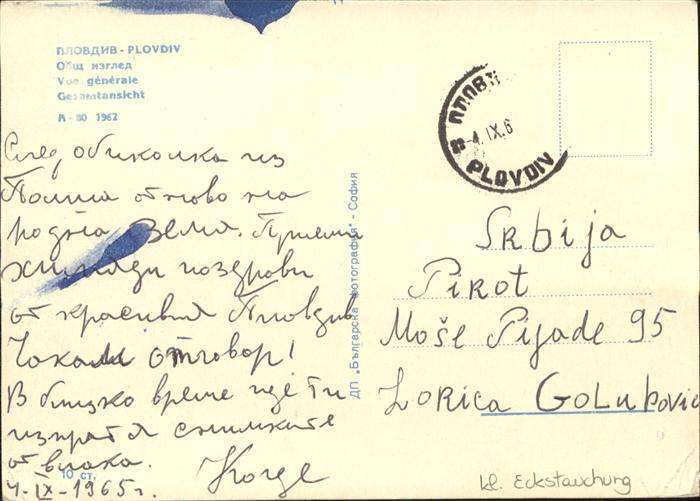 ПЛОВДИВ - PLOVDIV
Общ изглед
Vue générale
Gesamtansicht
А - 80 1962
След обиколка из
отново на
родна земя. Приеми
хиляди поздрави
от красивия Пловдив
Чакам отговор!
В близко време ще ти
изпратя снимките
от влака.
10 ст.
4-IX-1965г.
ДП „Българска фотография" - София
ПЛОВ
4.IX.6
PLOVDIV
Srbija
Pirot
Moše Pijade 95
Zorica Golubović
kl. Eckstauchung